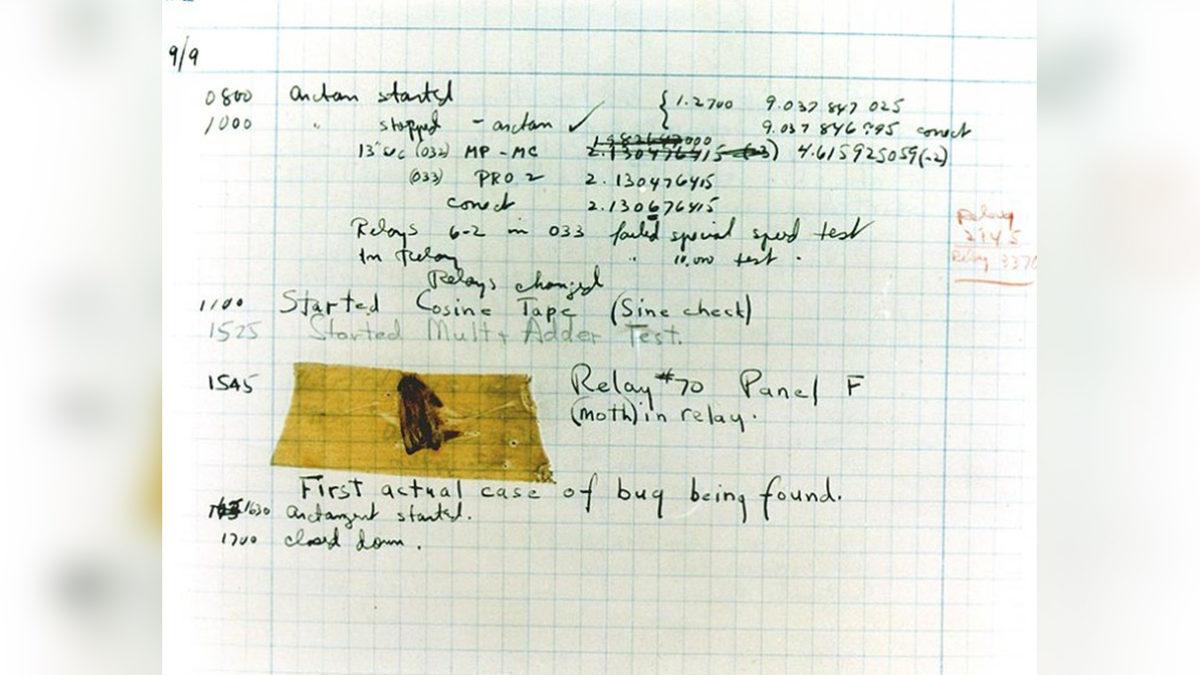 9/9
0800 arctan started { 1.2700 9.037 847 025
1000 " stopped - arctan ✓ 9.037 846 795 correct
13"uc (032) MP - MC 2.130476415 (-3) 4.615925059(-2)
(033) PRO 2 2.130476415
correct 2.130676415
Relays 6-2 in 033 failed special speed test
In Relay " 10,000 test .
Relays changed
Relay
2145
Relay 3370
1100 Started Cosine Tape (Sine check)
1525 Started Mult + Adder Test.
1545 Relay #70 Panel F
(moth) in relay.
First actual case of bug being found.
1630 arctangent started.
1700 closed down .